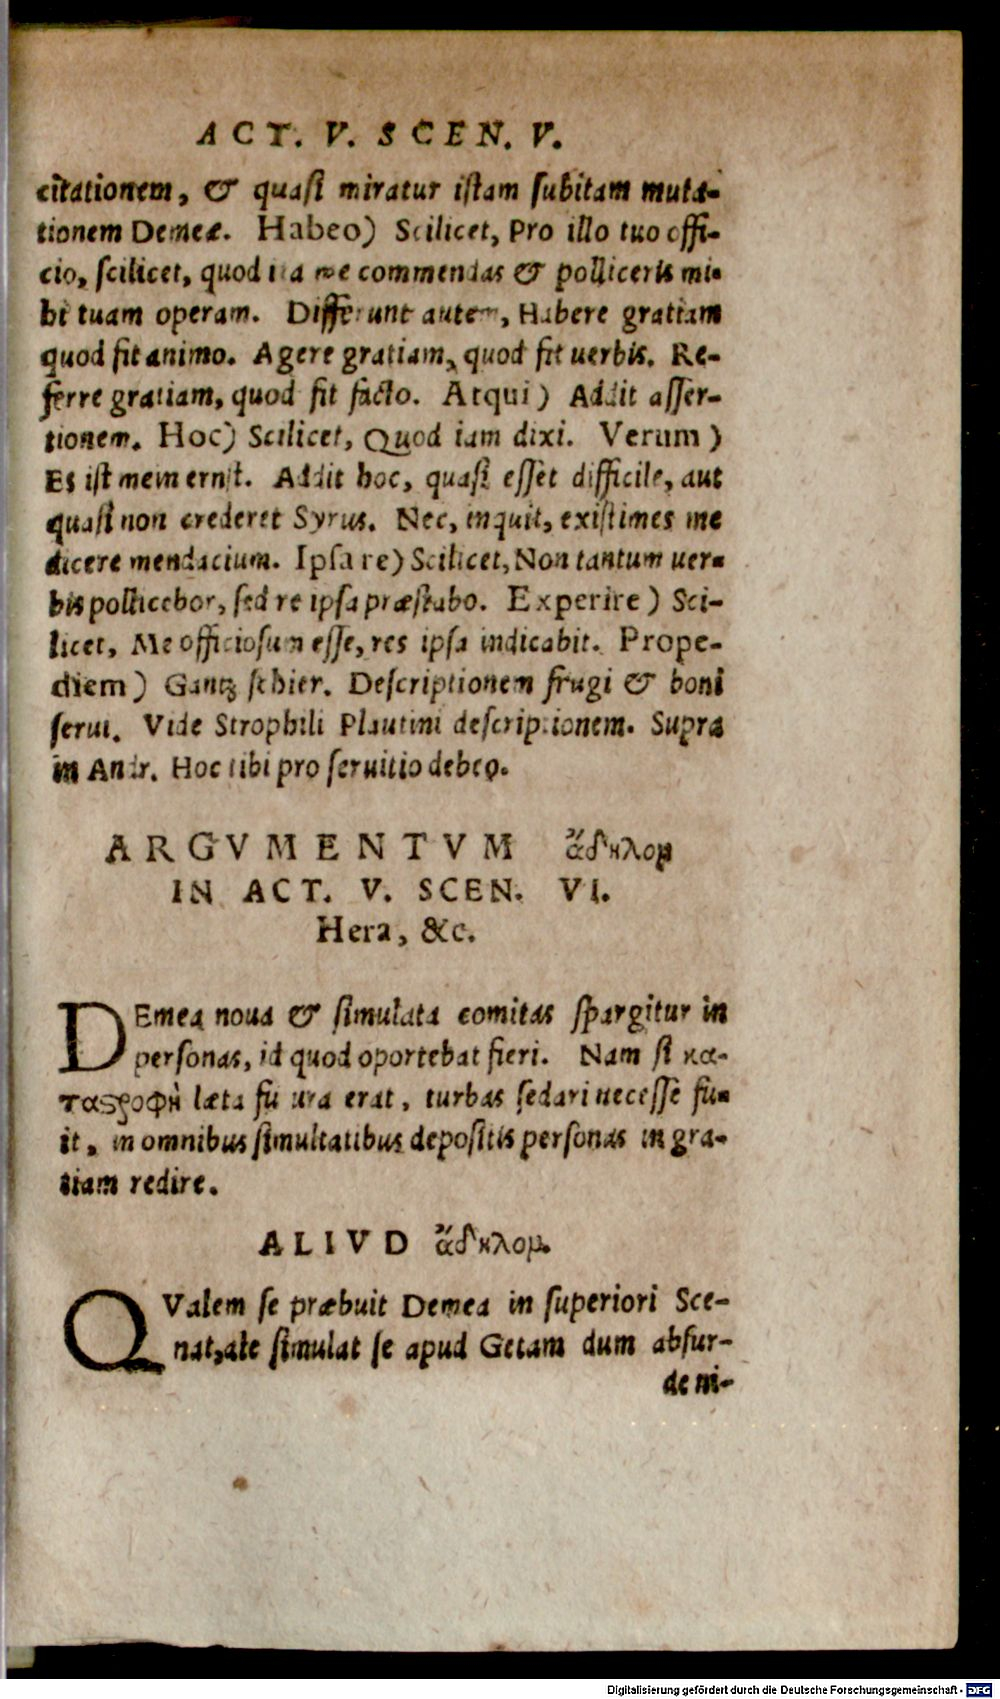 ACT. V. SCEN. V.
citationem, & quasi miratur istam subitam muta-
tionem Demeæ. Habeo) Scilicet, Pro illo tuo offi-
cio, scilicet, quod ita me commendas & polliceris mi-
hi tuam operam. Differunt autem, Habere gratiam
quod fit animo. Agere gratiam, quod fit uerbis. Re-
ferre gratiam, quod fit facto. Atqui) Addit asser-
tionem. Hoc) Scilicet, Quod iam dixi. Verum)
Es ist mein ernst. Addit hoc, quasi esset difficile, aut
quasi non crederet Syrus. Nec, inquit, existimes me
dicere mendacium. Ipsa re) Scilicet, Non tantum uer-
bis pollicebor, sed re ipsa præstabo. Experire) Sci-
licet, Me officiosum esse, res ipsa indicabit. Prope-
diem) Gantz schier. Descriptionem frugi & boni
serui. Vide Strophili Plautini descriptionem. Supra
in Andr. Hoc tibi pro seruitio debeo.
ARGVMENTVM ἄδηλομ
IN ACT. V. SCEN. VI.
Hera, &c.
DEmea noua & simulata comitas spargitur in
personas, id quod oportebat fieri. Nam si κα-
ταςροφὴ læta futura erat, turbas sedari necesse fu-
it, in omnibus simultatibus depositis personas in gra-
tiam redire.
ALIVD ἄδηλομ.
QValem se præbuit Demea in superiori Sce-
nat,ale simulat se apud Getam dum absur-
de ni-
Digitalisierung gefördert durch die Deutsche Forschungsgemeinschaft - DFG